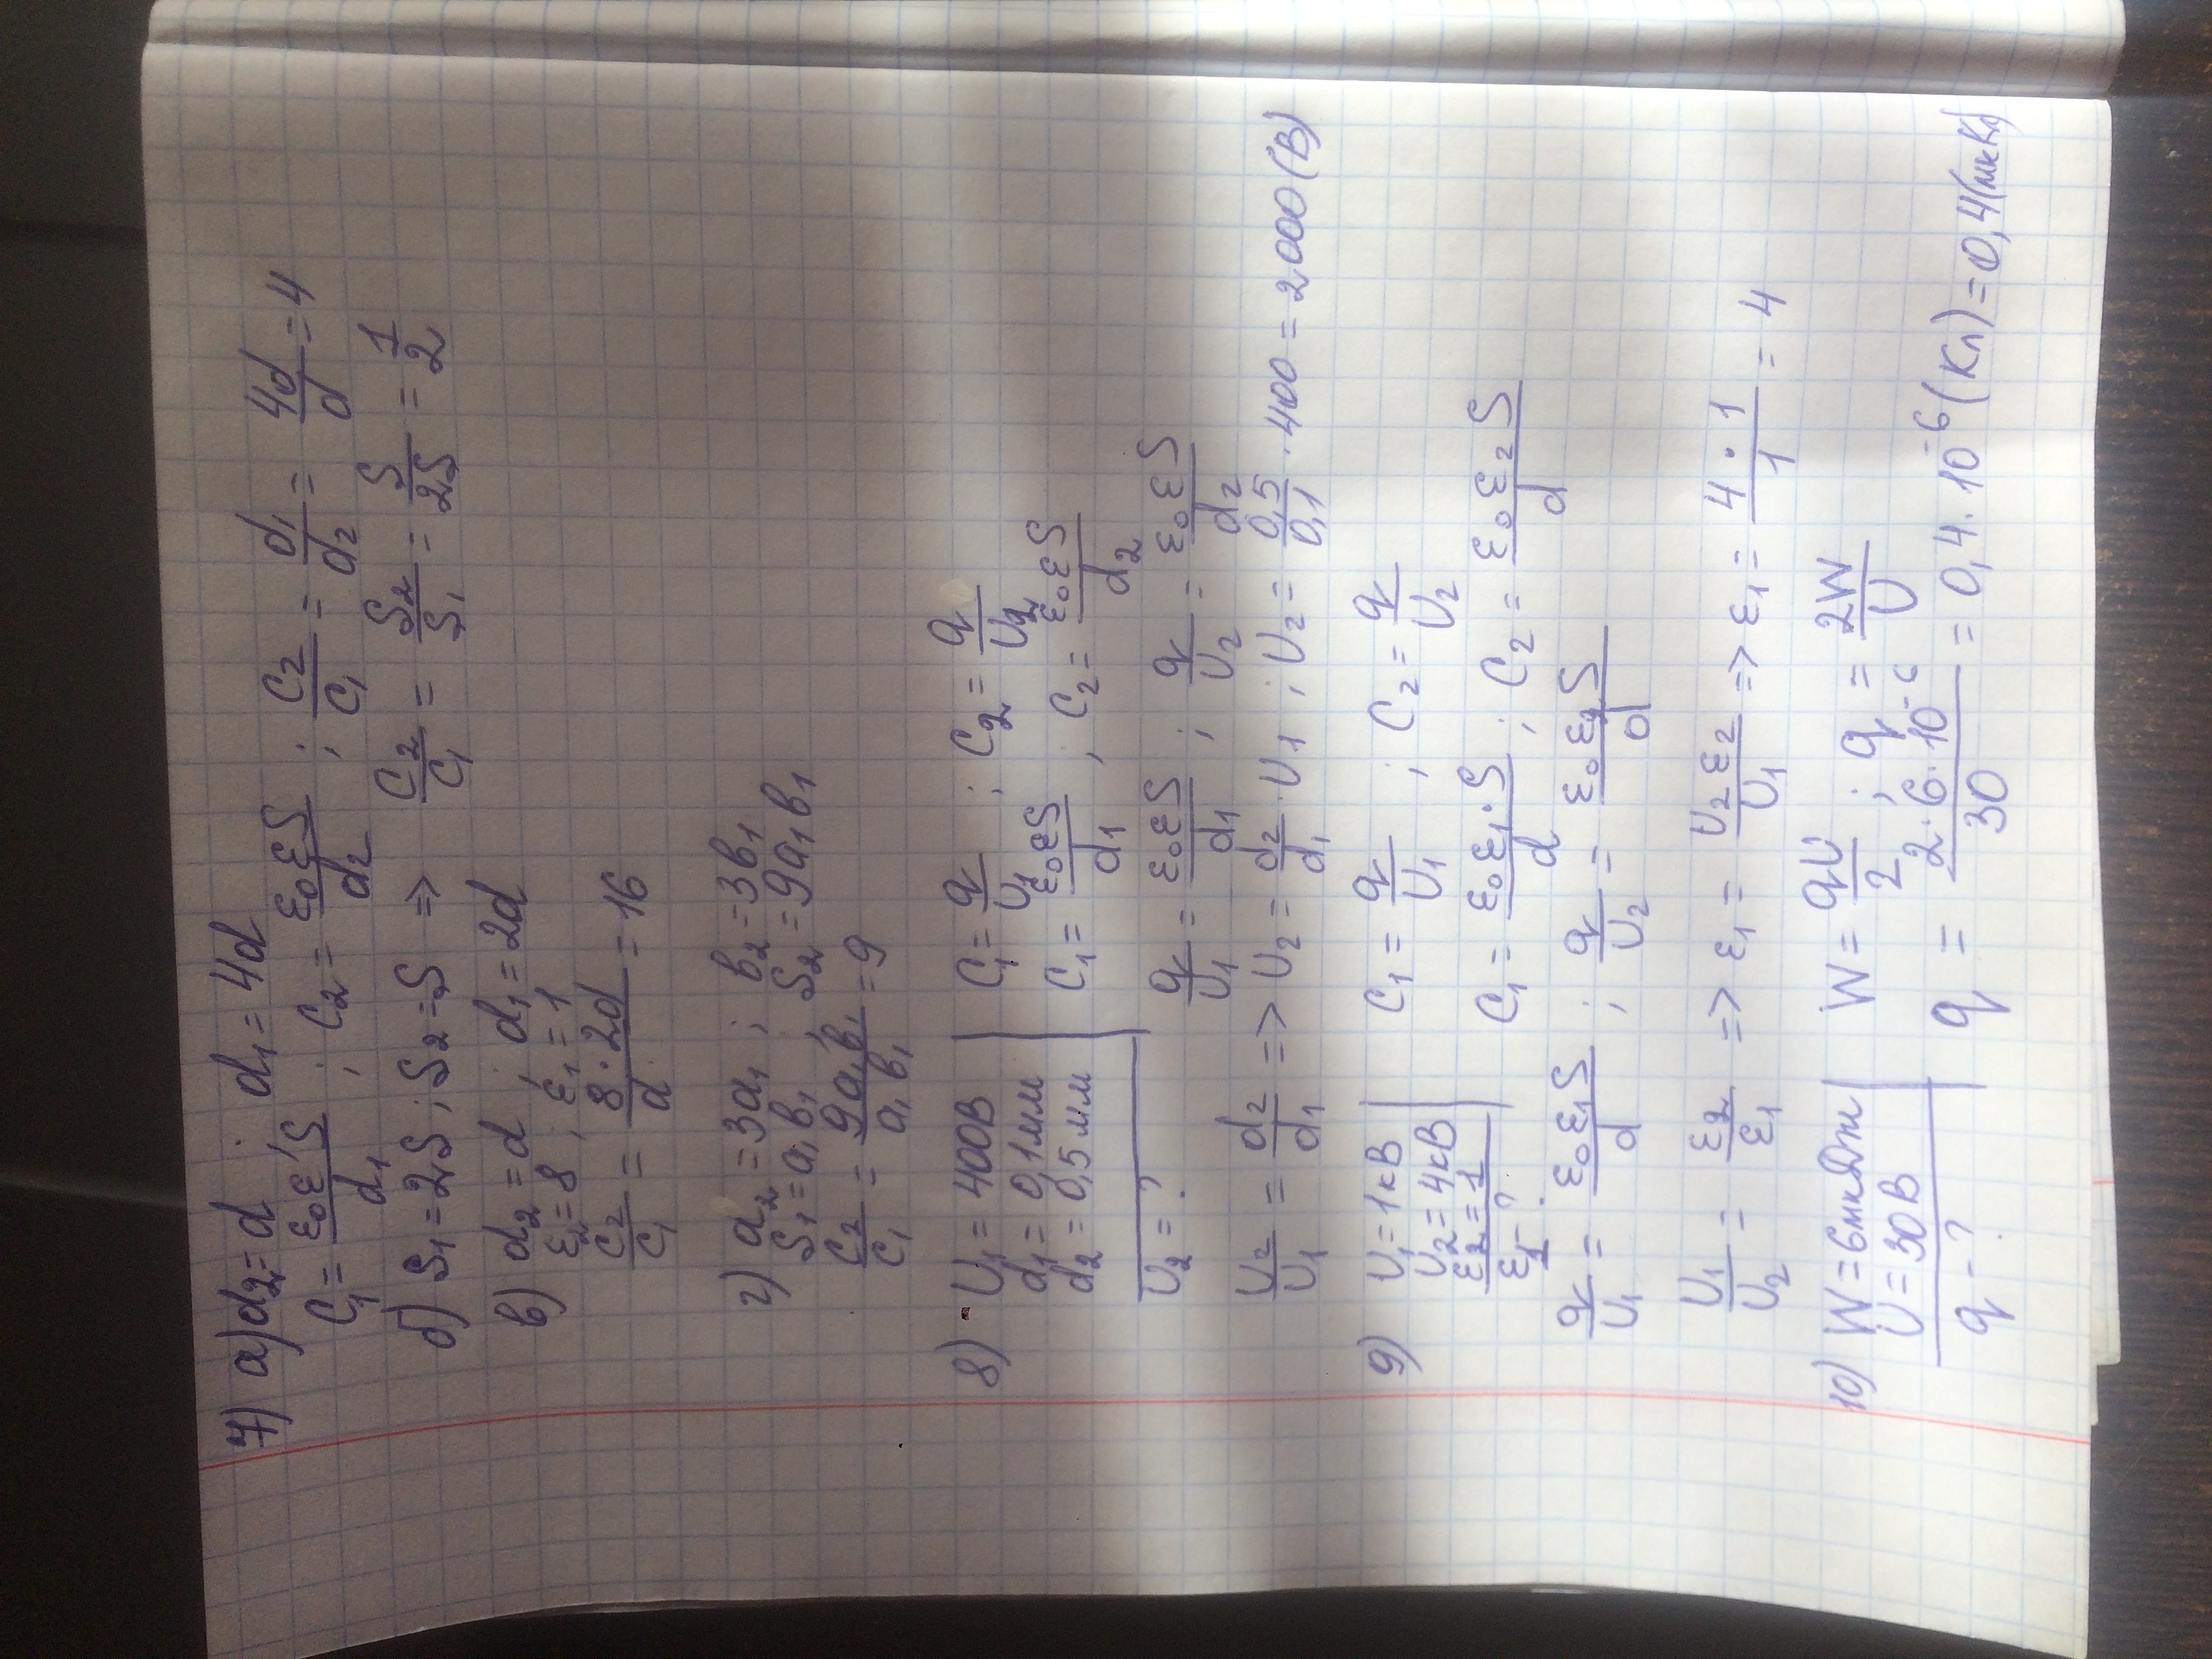 7) а) d₂=d d₁=4d
C₁ = ε₀εS/d₁ ; C₂ = ε₀εS/d₂ ; C₂/C₁ = d₁/d₂ = 4d/d = 4
б) S₁=2S ; S₂=S => C₂/C₁ = S₂/S₁ = S/2S = 1/2
в) d₂=d ; d₁=2d
ε₂=8 ; ε₁=1
C₂/C₁ = 8·2d/d = 16
г) a₂=3a₁ ; b₂=3b₁
S₁=a₁b₁ S₂=9a₁b₁
C₂/C₁ = 9a₁b₁/a₁b₁ = 9
8) U₁ = 400В C₁ = q/U₁ ; C₂ = q/U₂
d₁ = 0,1мм
d₂ = 0,5мм C₁ = ε₀εS/d₁ ; C₂ = ε₀εS/d₂
U₂ = ? q/U₁ = ε₀εS/d₁ ; q/U₂ = ε₀εS/d₂
U₂/U₁ = d₂/d₁ => U₂ = d₂/d₁ · U₁ ; U₂ = 0,5/0,1 · 400 = 2000 (В)
9) U₁=1кВ C₁ = q/U₁ ; C₂ = q/U₂
U₂=4кВ
ε₂=1 C₁ = ε₀ε₁·S/d ; C₂ = ε₀ε₂S/d
ε₁-?
q/U₁ = ε₀ε₁S/d ; q/U₂ = ε₀ε₂S/d
U₁/U₂ = ε₂/ε₁ => ε₁ = U₂ε₂/U₁ => ε₁ = 4·1/1 = 4
10) W=6мкДж W = qU/2 ; q = 2W/U
U=30В
q-? q = 2·6·10⁻⁶/30 = 0,4·10⁻⁶ (Кл) = 0,4 (мкКл)